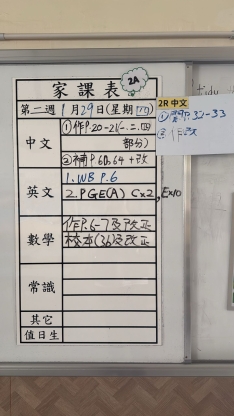 家課表
2A
第二週 1月29日(星期四)
中文
①作P.20-21(一.二.四
部分)
②補P.60,64+改
英文
1. WB P.6
2. PGE(A) Cx2, Ex10
數學
作P.6-7及改正
校本(36)及改正
常識
其它
值日生
2R 中文
①閱P.32-33
②作改
tidy